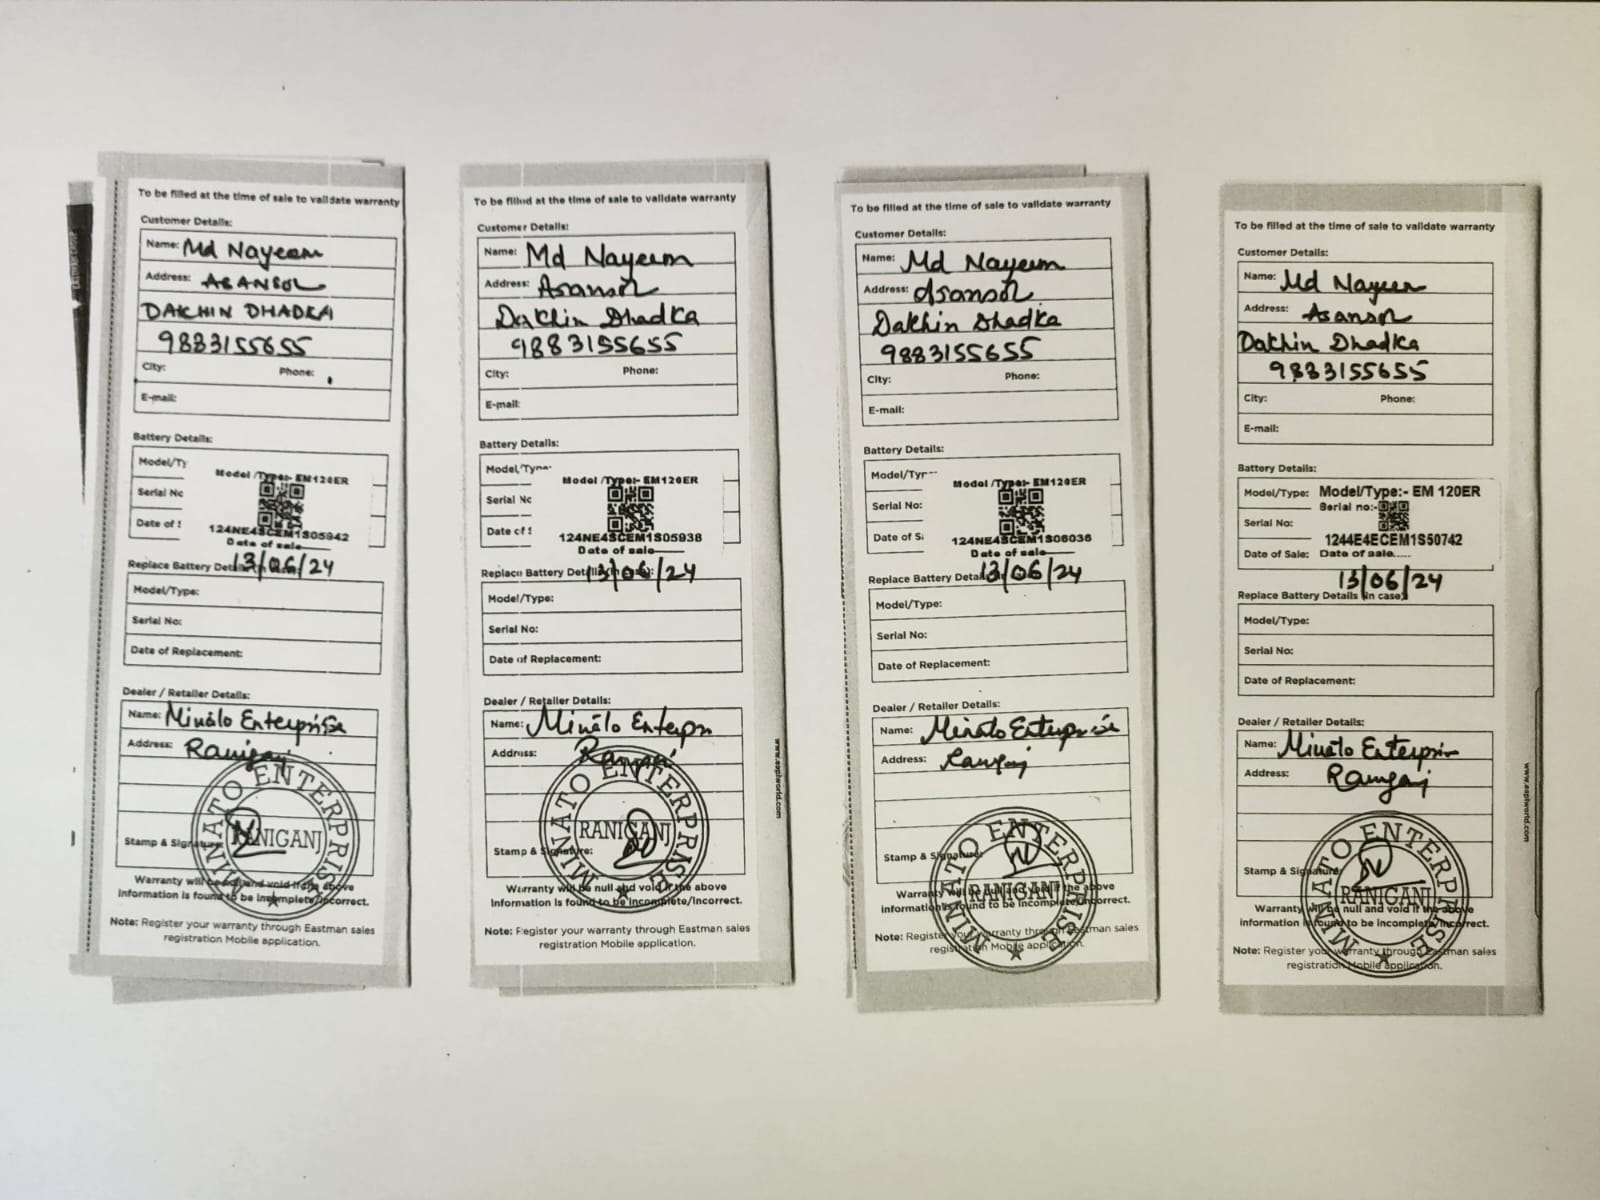 To be filled at the time of sale to validate warranty
Customer Details:
Name: Md Nayeem
Address: ASANSOL
DAKHIN DHADKA
9883155655
City: Phone:
E-mail:
Battery Details:
Model/Ty
Model /Type:- EM120ER
Serial No
Date of S
124NE4SCEM1S05942
Date of sale
13/06/24
Replace Battery Details
Model/Type:
Serial No:
Date of Replacement:
Dealer / Retailer Details:
Name: Minato Enterprise
Address: Raniganj
MINATO ENTERPRISE
RANIGANJ
Stamp & Signature:
Warranty will be null and void if the above
information is found to be incomplete/incorrect.
Note: Register your warranty through Eastman sales
registration Mobile application.
To be filled at the time of sale to validate warranty
Customer Details:
Name: Md Nayeem
Address: Asansol
Dakhin Dhadka
9883155655
City: Phone:
E-mail:
Battery Details:
Model/Type
Model /Type:- EM120ER
Serial No
Date of S
124NE4SCEM1S05938
Date of sale
13/06/24
Replace Battery Details
Model/Type:
Serial No:
Date of Replacement:
Dealer / Retailer Details:
Name: Minato Enterpr
Address: Raniganj
MINATO ENTERPRISE
RANIGANJ
Stamp & Signature:
Warranty will be null and void if the above
information is found to be incomplete/incorrect.
Note: Register your warranty through Eastman sales
registration Mobile application.
www.eaplworld.com
To be filled at the time of sale to validate warranty
Customer Details:
Name: Md Nayeem
Address: Asansol
Dakhin Dhadka
9883155655
City: Phone:
E-mail:
Battery Details:
Model/Typ
Model /Type:- EM120ER
Serial No:
Date of S
124NE4SCEM1S06036
Date of sale
13/06/24
Replace Battery Details
Model/Type:
Serial No:
Date of Replacement:
Dealer / Retailer Details:
Name: Minato Enterprise
Address: Raniganj
MINATO ENTERPRISE
RANIGANJ
Stamp & Signature:
Warranty will be null and void if the above
information is found to be incomplete/incorrect.
Note: Register your warranty through Eastman sales
registration Mobile application.
To be filled at the time of sale to validate warranty
Customer Details:
Name: Md Nayeem
Address: Asansol
Dakhin Dhadka
9883155655
City: Phone:
E-mail:
Battery Details:
Model/Type: Model/Type:- EM 120ER
Serial no:-
Serial No:
1244E4ECEM1S50742
Date of Sale: Date of sale.....
13/06/24
Replace Battery Details (in case)
Model/Type:
Serial No:
Date of Replacement:
Dealer / Retailer Details:
Name: Minato Enterpris
Address: Raniganj
MINATO ENTERPRISE
RANIGANJ
Stamp & Signature:
Warranty will be null and void if the above
information is found to be incomplete/incorrect.
Note: Register your warranty through Eastman sales
registration Mobile application.
www.eaplworld.com